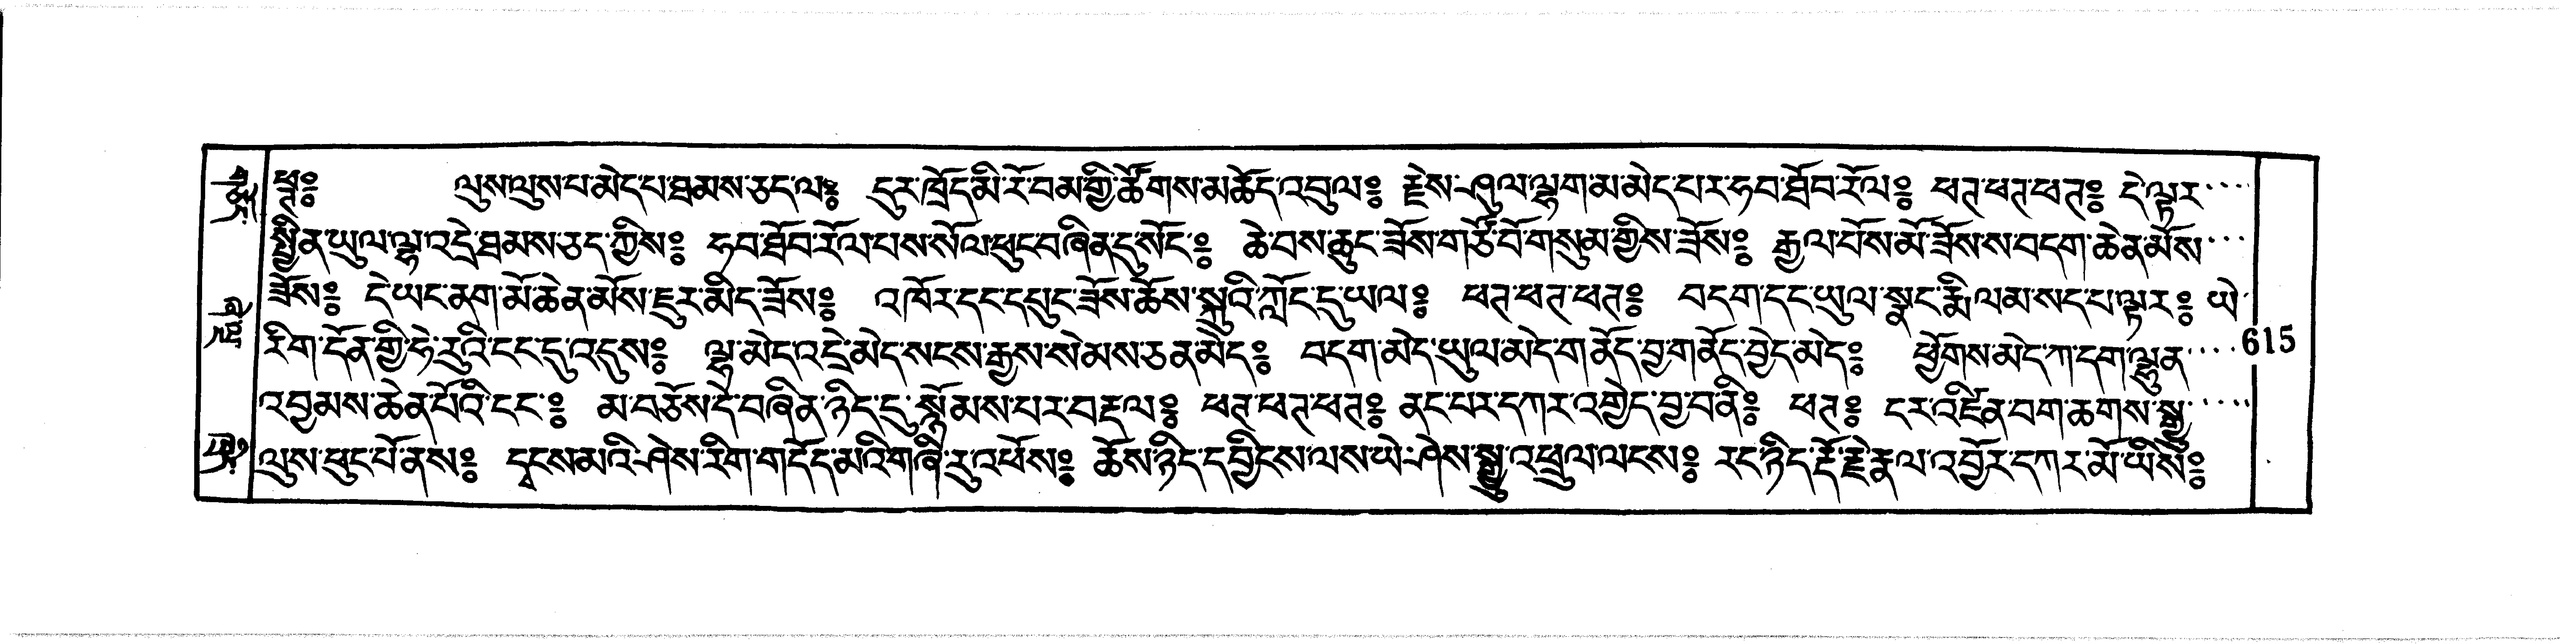 ཕཊ༔ ལུས་ལུས་པ་མེད་པ་ཐམས་ཅད་ལ༔ དུར་ཁྲོད་མི་རོ་བམ་གྱི་ཚོགས་མཆོད་འབུལ༔ རྗེས་ཤུལ་ལྷག་མ་མེད་པར་ཧབ་ཐོབ་རོལ༔ ཕཊ་ཕཊ་ཕཊ༔ དེ་ལྟར་....
སྤྱིན་ཡུལ་ལྷ་འདྲེ་ཐམས་ཅད་ཀྱིས༔ ཧབ་ཐོབ་རོལ་པས་སོལ་ཕུང་བཞིན་དུ་སོང་༔ ཆེ་བས་ཆུང་ཟོས་གཙོ་བོ་གསུམ་གྱིས་ཟོས༔ རྒྱལ་པོས་མོ་ཟོས་ས་བདག་ཆེན་མོས་...
ཟོས༔ དེ་ཡང་ནག་མོ་ཆེན་མོས་ཧུར་མིད་ཟོས༔ འཁོར་དང་དཔུང་ཟོས་ཆོས་སྐུའི་ཀློང་དུ་ཡལ༔ ཕཊ་ཕཊ་ཕཊ༔ བདག་དང་ཡུལ་སྣང་རྨི་ལམ་སད་པ་ལྟར༔ ཡེ་
རིག་དོན་གྱི་ཧེ་རུའི་ངང་དུ་འདུས༔ ལྷ་མེད་འདྲེ་མེད་སངས་རྒྱས་སེམས་ཅན་མེད༔ བདག་མེད་ཡུལ་མེད་གནོད་བྱ་གནོད་བྱེད་མེད༔ ཕྱོགས་མེད་ཀ་དག་ལྷུན་.... 615
འབྱམས་ཆེན་པོའི་ངང་༔ མ་བཅོས་དེ་བཞིན་ཉིད་དུ་སྙོམས་པར་བརྡལ༔ ཕཊ་ཕཊ་ཕཊ༔ ནང་པར་དཀར་འགྱེད་བྱ་བ་ནི༔ ཕཊ༔ དར་འཛིན་བག་ཆགས་སྒྱུ་....
ལུས་ཕུང་པོ་ནས༔ དྭངས་མའི་ཤེས་རིག་གདོད་མའི་གཞི་རུ་འཕོས༔ ཆོས་ཉིད་དབྱིངས་ལས་ཡེ་ཤེས་སྒྱུ་འཕྲུལ་ལངས༔ རང་ཉིད་རྡོ་རྗེ་རྣལ་འབྱོར་དཀར་མོ་ཡིས༔